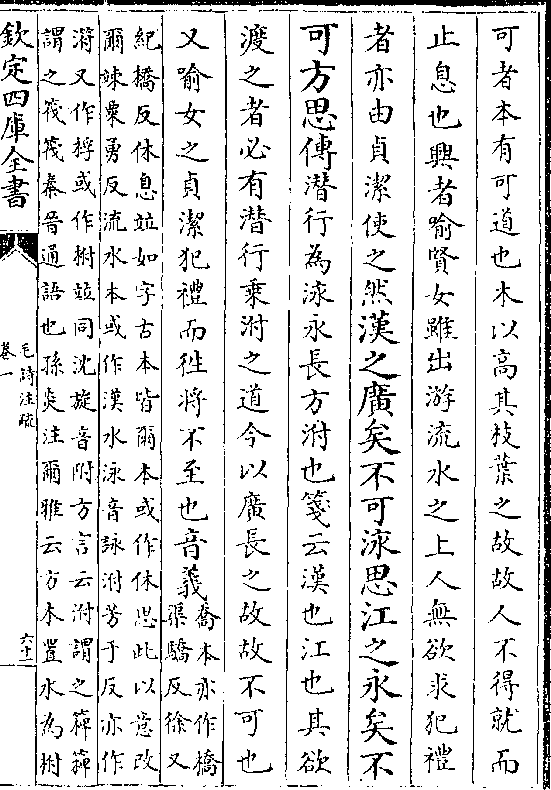 可者本有可道也木以高其枝葉之故故人不得就而
止息也興者喻賢女雖出游流水之上人無欲求犯禮
者亦由貞潔使之然漢之廣矣不可泳思江之永矣不
可方思傳潛行為泳永長方泭也箋云漢也江也其欲
渡之者必有潛行乗泭之道今以廣長之故故不可也
又喻女之貞潔犯禮而徃將不至也音義
喬本亦作橋
渠驕反徐又
紀橋反休息竝如字古本皆爾本或作休思此以意改
爾竦粟勇反流水本或作漢水泳音詠泭芳于反亦作
㳍又作桴或作柎竝同沈旋音附方言云泭謂之䉬䉬
謂之筏筏秦晉通語也孫炎注爾雅云方木置水為柎
欽定四庫全書
毛詩注疏
卷一
六十一